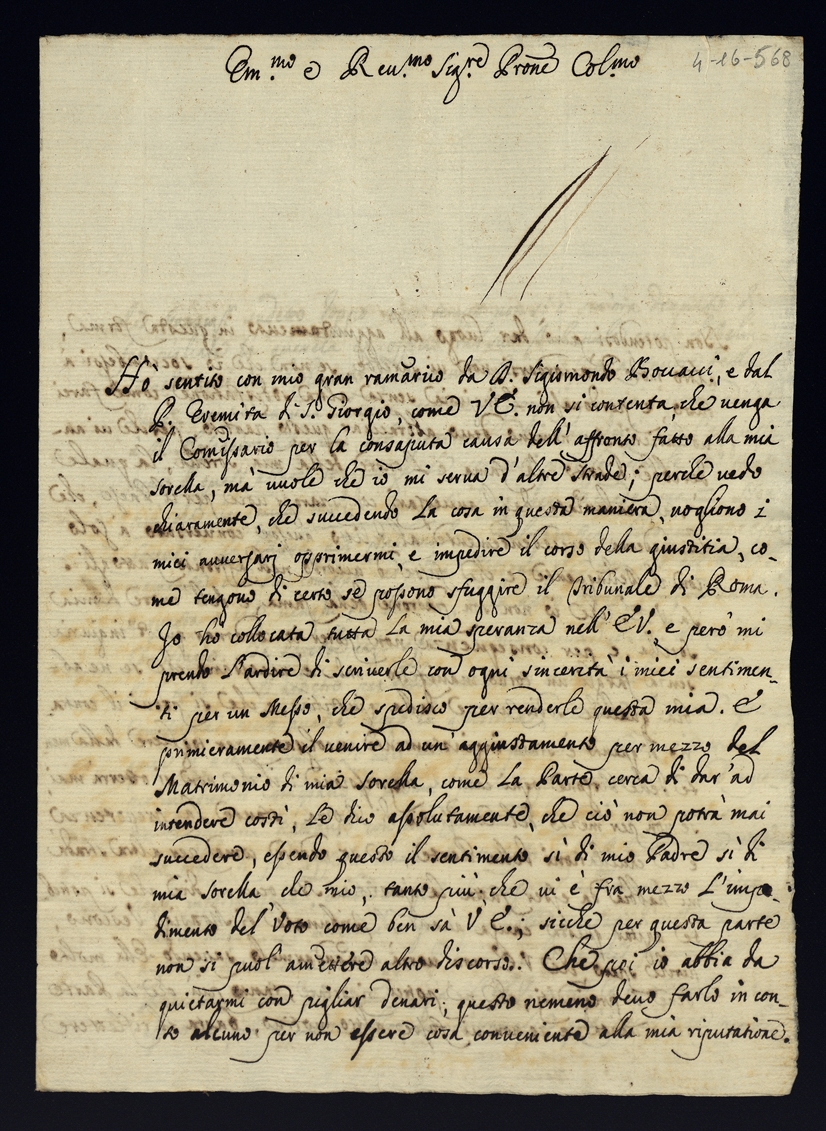 Em.mo e Reu.mo Sig.re Prone Col.mo
4-16-568
Hò sentito con mio gran ramarico da D. Sigismondo Bovacci, e dal
P. Eremita di S. Giorgio, come V E. non si contenta, che uenga
il Comissario per la consaputa causa dell' affronto fatto alla mia
sorella, mà uuole che io mi serua d'altre strade; perche uedo
chiaramente, che succedendo la cosa in questa maniera, uogliono i
miei auuersarj opprimermi, e impedire il corso della giustitia, co-
me tengono di certo se possono sfuggire il Tribunale di Roma.
Io ho collocata tutta la mia speranza nell' E V. e però mi
prendo l'ardire di scriuerle con ogni sincerità i miei sentimen-
ti per un Messo, che spedisco per renderle questa mia. E
primieramente il uenire ad un' aggiustamento per mezzo del
Matrimonio di mia sorella, come la Parte cerca di dar' ad
intendere costì, le dico assolutamente, che ciò non potrà mai
succedere, essendo questo il sentimento sì di mio Padre sì di
mia sorella che mio, tanto più che ui è fra mezzo l'impe-
dimento del Voto come ben sà V E.; sicche per questa parte
non si puol' amettere altro discorso. Che poi io abbia da
quietarmi con pigliar denari, questo nemeno deuo farlo in con-
to alcuno per non essere cosa conueniente alla mia riputatione.